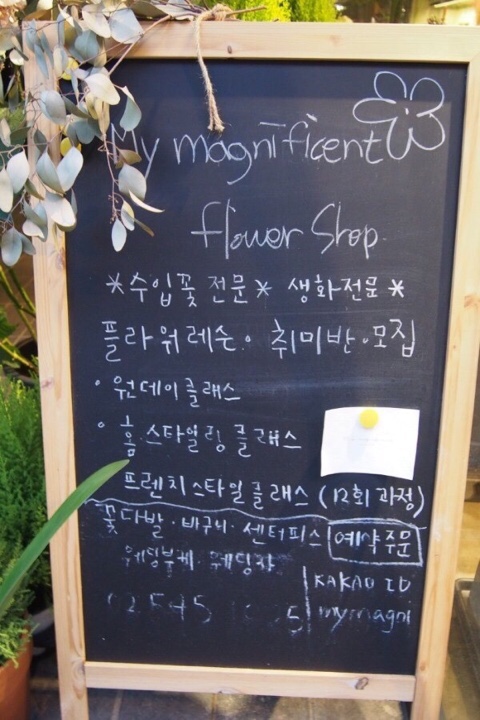 My magnificent
flower Shop
*수입꽃 전문* 생화전문*
플라워레슨 · 취미반 · 모집
· 원데이클래스
· 홈 · 스타일링 클래스
프렌치스타일클래스 (12회 과정)
꽃다발 · 바구니 · 센터피스 예약주문
웨딩부케 · 웨딩카
KAKAO ID
mymagni
02 545
5